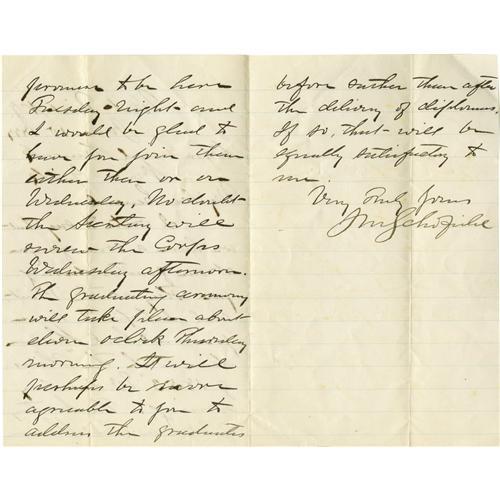 promise to be here
Tuesday night and
I would be glad to
have you join them
either then or on
Wednesday. No doubt
the Secretary will
review the Corps
Wednesday afternoon.
The graduating ceremony
will take place about
eleven o'clock Thursday
morning. It will
perhaps be more
agreeable to you to
address the graduates
before rather than after
the delivery of diplomas.
If so, that will be
equally satisfactory to
me.
Very truly yours
JM Schofield